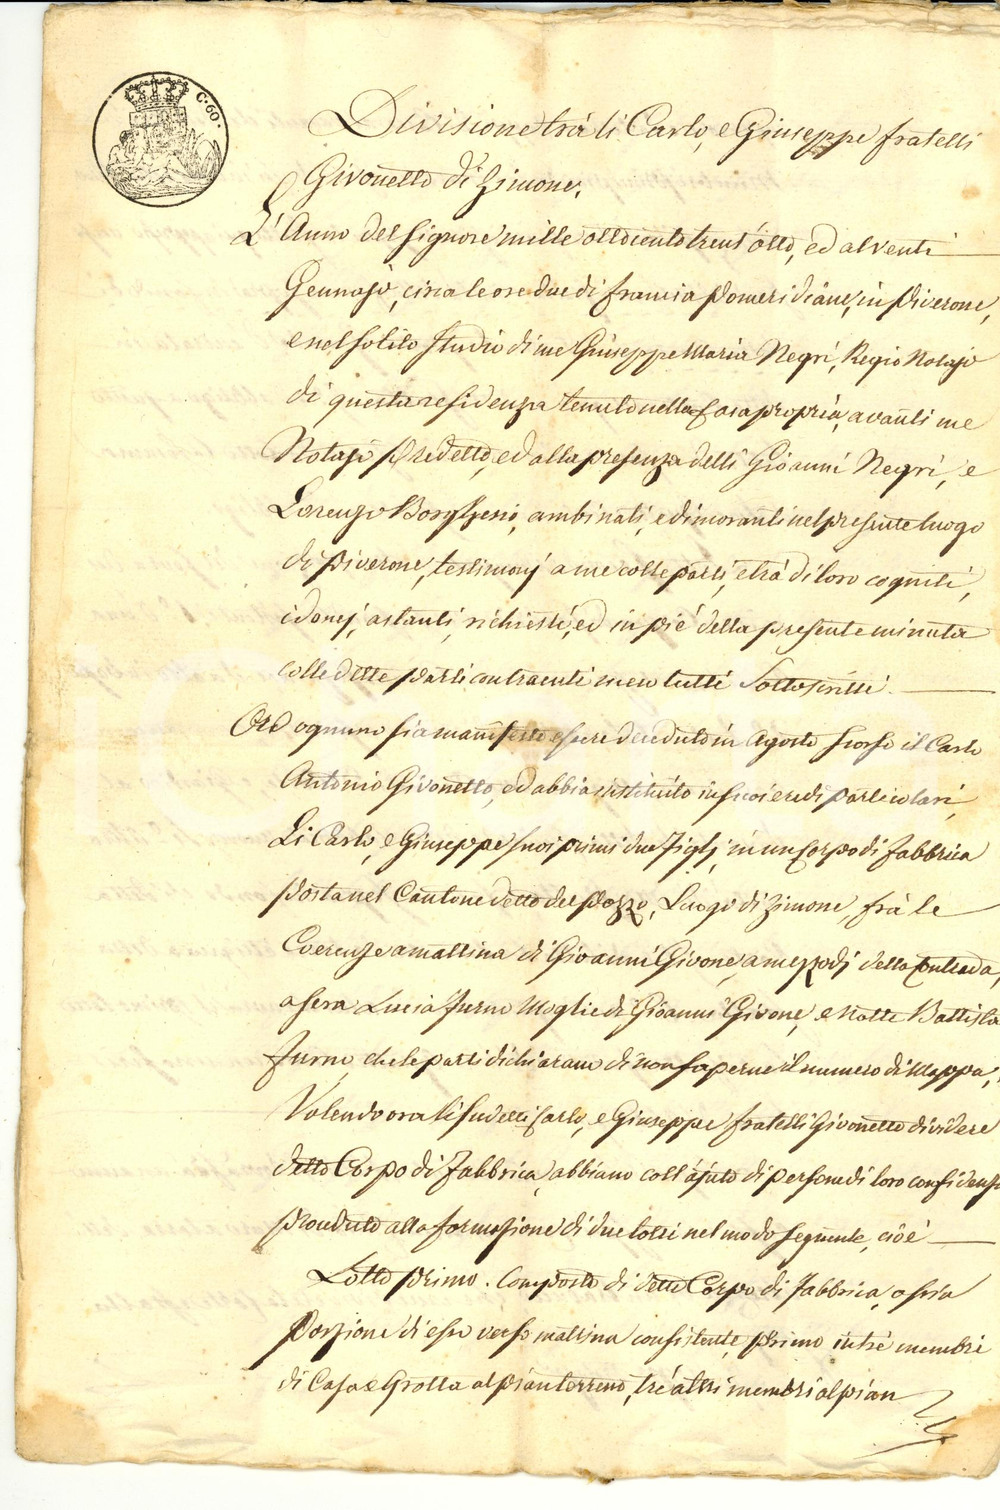 C. 60.
Divisione trà li Carlo, e Giuseppe fratelli
Givonetto di Zimone.
L'Anno del Signore mille ottocento trent'otto, ed al venti
Gennajo, circa le ore due di francia pomeridiane, in Piverone,
e nel solito studio di me Giuseppe Maria Negri, Regio Notajo
di questa residenza tenuto nella Casa propria, avanti me
Notajo predetto, ed alla presenza delli Gioanni Negri, e
Lorenzo Borghesio, ambi nati, e dimoranti nel presente luogo
di Piverone, testimonj a me colle parti, e trà di loro cogniti,
idonej, astanti, richiesti, ed in piè della presente minuta
colle dette parti contraenti meco tutti sottoscritti.
Ad ognuno sia manifesto essere deceduto in Agosto scorso il Carlo
Antonio Givonetto, ed abbia instituito in suoi eredi particolari,
Li Carlo, e Giuseppe suoi primi due figlj, in un Corpo di fabbrica
posta nel Cantone detto del Pozzo, Luogo di Zimone, frà le
Coerenze a mattina di Gioanni Givone, a mezzodj della Contrada,
a sera Lucia Furno Moglie di Gioanni Givone, e Notte Battista
Furno, che le parti dichiarano di non saperne il numero di Mappa;
Volendo ora li sudetti Carlo, e Giuseppe fratelli Givonetto dividere
detto Corpo di Fabbrica, abbiano coll'ajuto di persone di loro confidenza
proceduto alla formazione di due lotti nel modo seguente, cioè
Lotto primo. Composto di detto Corpo di Fabbrica, ossia
Porzione di esso verso mattina consistente, primo in trè membri
di Casa e Grotta al pian terreno, trè altri membri al pian